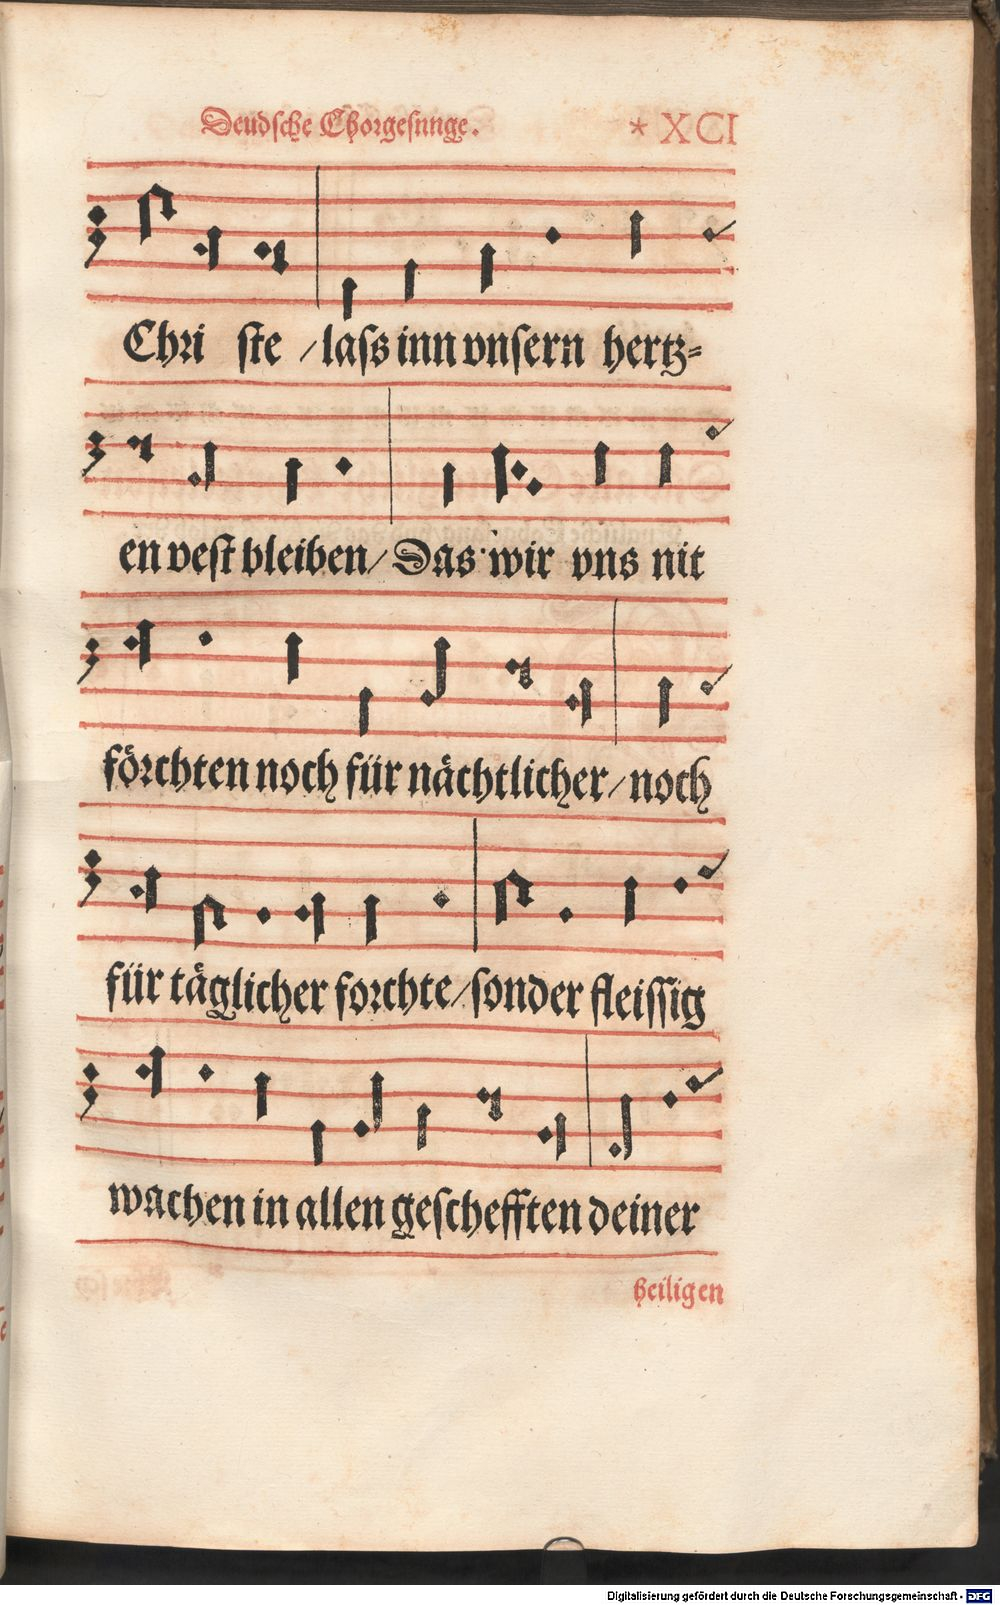 Deudsche Chorgesunge. * XCI
Chri ste / lass inn vnsern hertz=
en vest bleiben / Das wir vns nit
förchten noch für nächtlicher / noch
für täglicher forchte / sonder fleissig
wachen in allen geschefften deiner
heiligen
Digitalisierung gefördert durch die Deutsche Forschungsgemeinschaft - DFG